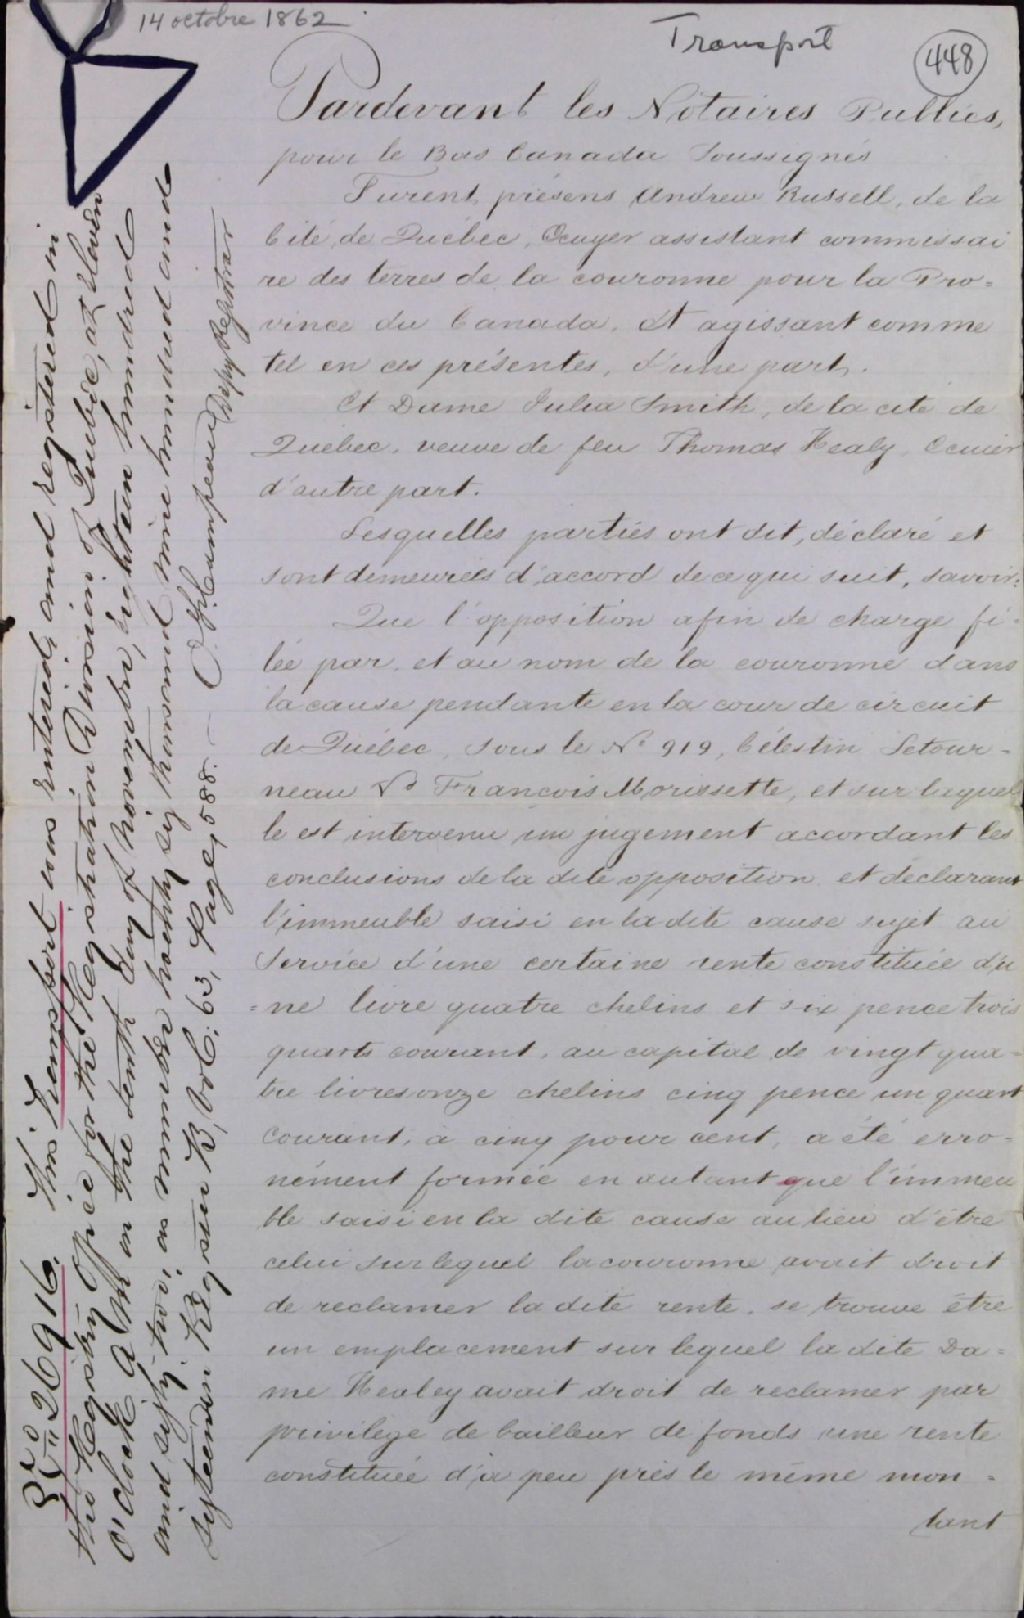 14 octobre 1862
Transport
448
Pardevant les Notaires Publics,
pour le Bas Canada Soussignés
Furent présens Andrew Russell, de la
Cité de Québec, Ecuyer assistant commissai
re des terres de la couronne pour la Pro-
vince du Canada. Et agissant comme
tel en ces présentes, d'une part.
Et Dame Julia Smith, de la cité de
Québec, veuve de feu Thomas Healy, Ecuier
d'autre part.
Lesquelles parties ont dit, déclaré et
sont demeurées d'accord de ce qui suit, savoir:
Que l'opposition afin de charge fi-
lée par, et au nom de la couronne dans
la cause pendante en la cour de circuit
de Québec, sous le No 919, Célestin Letour-
neau Vs François Morissette, et sur laquel
le est intervenu un jugement accordant les
conclusions de la dite opposition et déclarant
l'immeuble saisi en la dite cause sujet au
Service d'une certaine rente constituée d'u
=ne livre quatre chelins et six pence trois
quarts courant, au capital de vingt qua-
tre livres onze chelins cinq pence un quart
courant, à cinq pour cent, a été erro-
nément formée en autant que l'immeu
ble saisi en la dite cause au lieu d'être
celui sur lequel la couronne avait droit
de reclamer la dite rente, se trouve être
un emplacement sur lequel la dite Da-
me Healey avait droit de reclamer par
privilège de bailleur de fonds une rente
constituée d'à peu près le même mon-
tant
No 26916. This Transport was entered and registered in
the Registry Office for the Registration Division of Quebec, at eleven
O'clock A M on the tenth day of November, eighteen hundred
and sixty two; as number twenty six thousand nine hundred and
sixteen in Register B, Vol: 63, Page, 588. — Campeau Depy Registrar